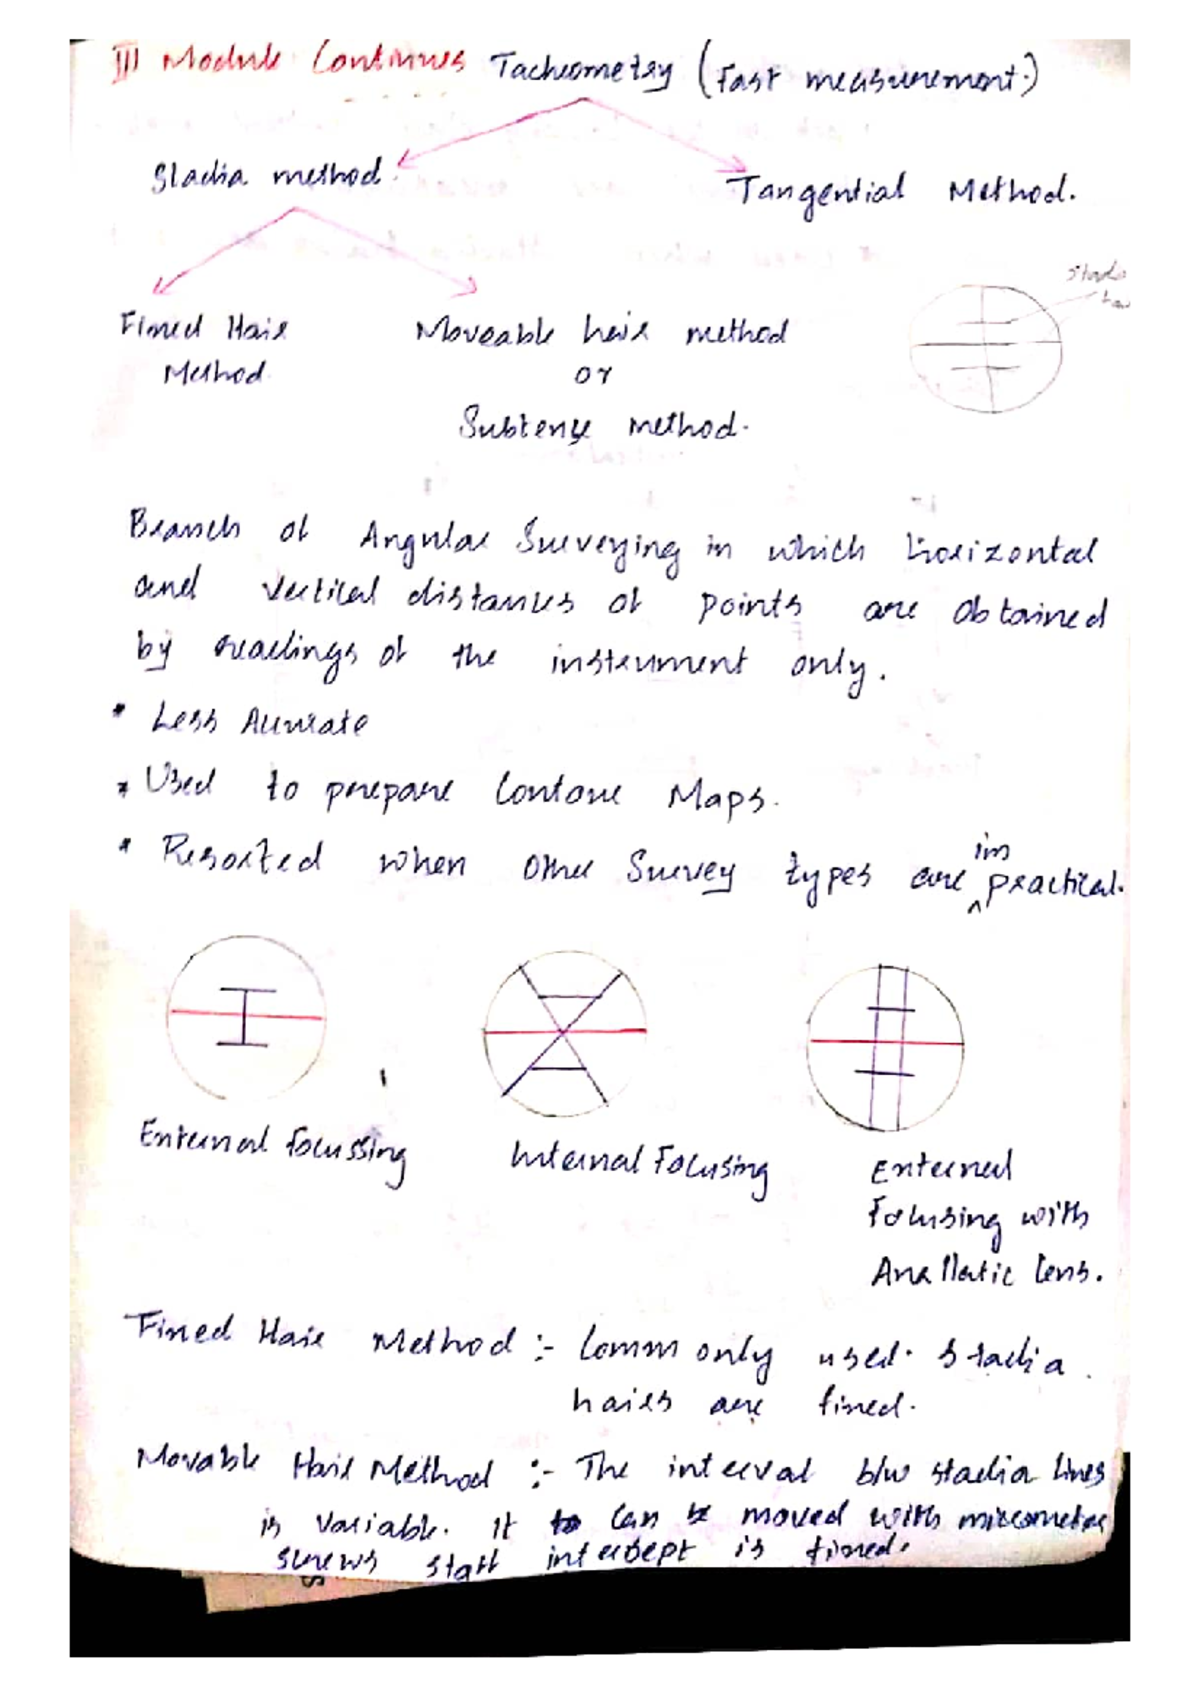 III Module Continues Tacheometry (Fast measurement.)
Stadia method.
Tangential Method.
Stadia
hair
Fixed Hair
Method.
Moveable hair method
or
Subtense method.
Branch of Angular Surveying in which horizontal
and vertical distances of points are obtained
by readings of the instrument only.
* Less Accurate
* Used to prepare Contour Maps.
* Resorted when other Survey types are ^im practical.
External focussing
Internal Focusing
External
Focusing with
Anallatic lens.
Fixed Hair Method :- Commonly used. stadia
hairs are fixed.
Movable Hair Method :- The interval b/w stadia lines
is variable. it can be moved with micrometer
screws staff intercept is fixed.